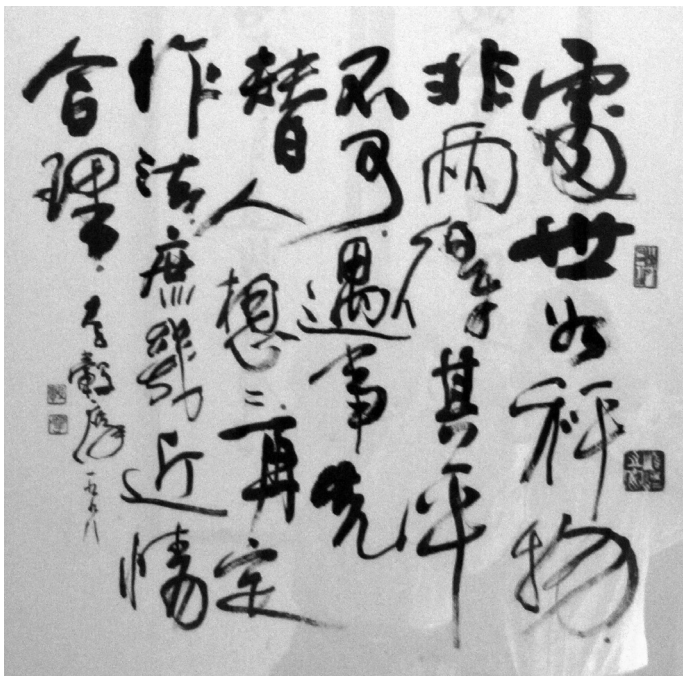 處世如秤物
非兩得其平
不可遇事先
替人想〻再定
作法庶幾近情
合理 李轂摩 一九九八